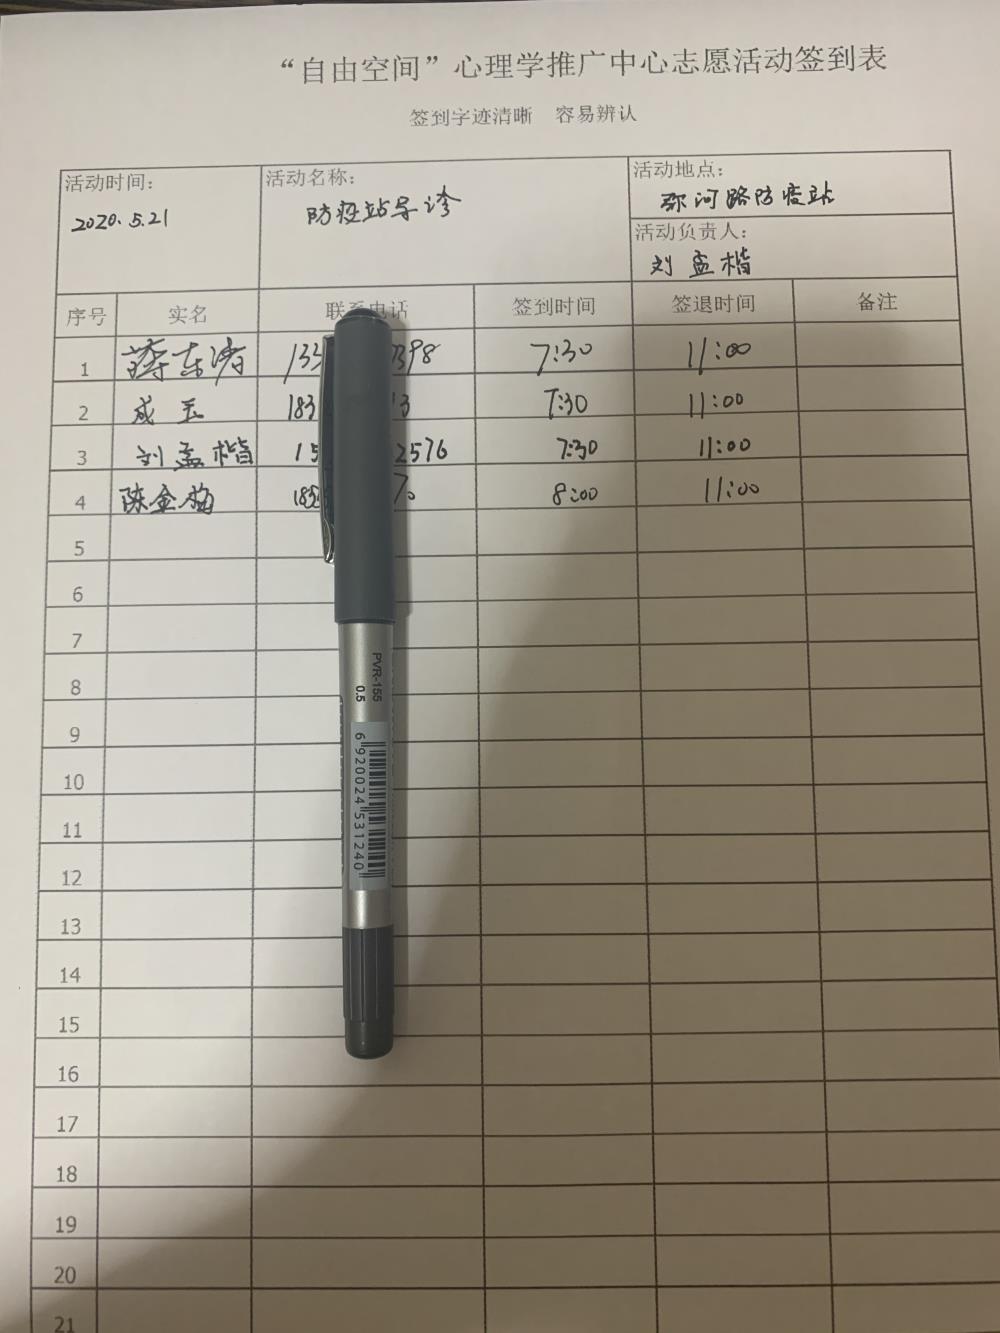 “自由空间”心理学推广中心志愿活动签到表
签到字迹清晰 容易辨认
活动时间： 活动名称： 活动地点：
2020.5.21 防疫站导诊 弥河路防疫站
活动负责人：
刘孟楷
序号 实名 联系电话 签到时间 签退时间 备注
1 蔡东涛 133 398 7:30 11:00
2 成玉 183 13 7:30 11:00
3 刘孟楷 15 2576 7:30 11:00
4 陈金梅 183 70 8:00 11:00
5
6
7
8
9
10
11
12
13
14
15
16
17
18
19
20
21
PVR-155
0.5
6920024531240